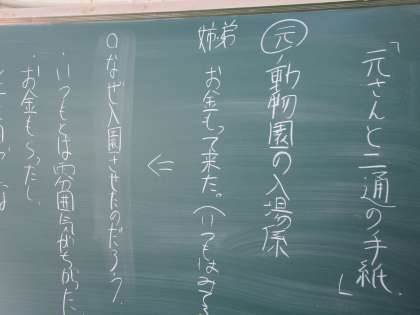 「元さんと二通の手紙」
元 動物園の入場係
姉弟 お金もって来た。(いつもはみてる
⇐
○なぜ入園させたのだろう。
・いつもとは雰囲気がちがった
・お金もらったし、